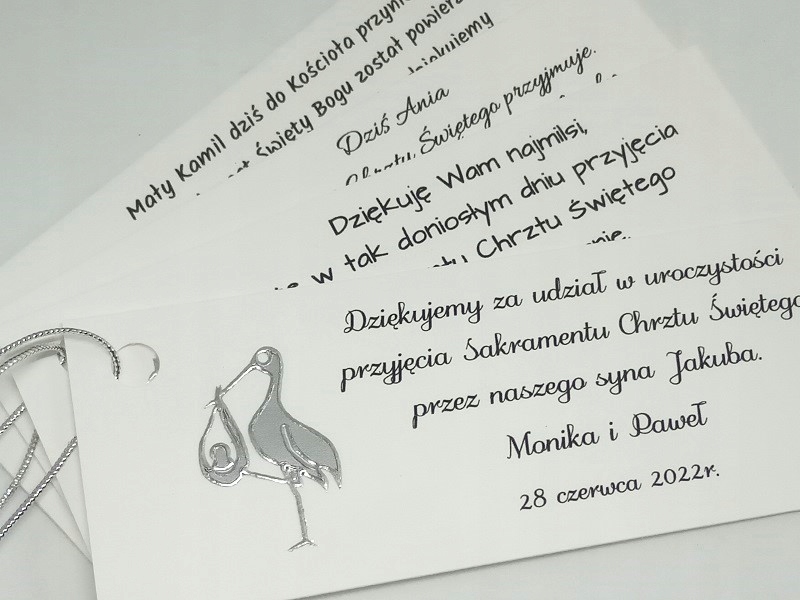 Mały Kamil dziś do Kościoła
Święty Bogu został
Dziś Ania
Świętego przyjmuje.
Dziękuję Wam najmilsi,
w tak doniosłym dniu przyjęcia
Chrztu Świętego
Dziękujemy za udział w uroczystości
przyjęcia Sakramentu Chrztu Świętego
przez naszego syna Jakuba.
Monika i Paweł
28 czerwca 2022r.